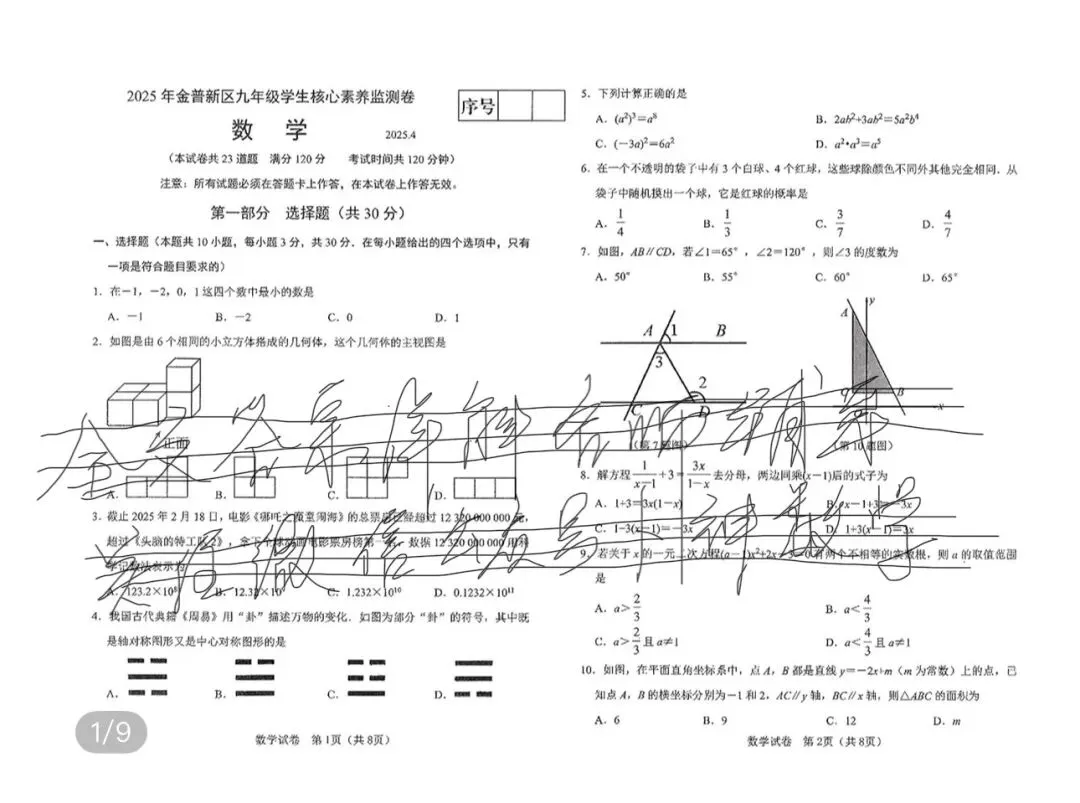 2025年金普新区九年级学生核心素养监测卷
序号
数 学
2025.4
(本试卷共23道题 满分120分 考试时间共120分钟)
注意：所有试题必须在答题卡上作答，在本试卷上作答无效。
第一部分 选择题(共30分)
一、选择题(本题共10小题，每小题3分，共30分．在每小题给出的四个选项中，只有
一项是符合题目要求的)
1．在－1，－2，0，1这四个数中最小的数是
A．－1 B．－2 C．0 D．1
2．如图是由6个相同的小立方体搭成的几何体，这个几何体的主视图是
正面
A． B． C． D．
3．截止2025年2月18日，电影《哪吒之魔童闹海》的总票房已经超过12 320 000 000元，
超过《头脑的特工队2》，拿下全球动画电影票房榜第一名．数据12 320 000 000用科
学记数法表示为
A．123.2×10⁸ B．12.32×10 C．1.232×10¹⁰ D．0.1232×10¹¹
4．我国古代典籍《周易》用“卦”描述万物的变化．如图为部分“卦”的符号，其中既
是轴对称图形又是中心对称图形的是
A． B． C． D．
数学试卷 第1页(共8页)
5．下列计算正确的是
A．(a²)³＝a⁸ B．2ab²+3ab²＝5a²b⁴
C．(－3a)²＝6a² D．a²•a³＝a⁵
6．在一个不透明的袋子中有3个白球、4个红球，这些球除颜色不同外其他完全相同．从
袋子中随机摸出一个球，它是红球的概率是
A．1/4 B．1/3 C．3/7 D．4/7
7．如图，AB∥CD，若∠1＝65°，∠2＝120°，则∠3的度数为
A．50° B．55° C．60° D．65°
A 1 B
3
2
C D
y
A
C B
x
(第7题图) (第10题图)
8．解方程 1/(x－1)+3＝3x/(1－x) 去分母，两边同乘(x－1)后的式子为
A．1+3＝3x(1－x) B．x－1+3＝－3x
C．1－3(x－1)＝－3x D．1+3(x－1)＝－3x
9．若关于x的一元二次方程(a－1)x²+2x－3＝0有两个不相等的实数根，则a的取值范围
是
A．a＞2/3 B．a＜4/3
C．a＞2/3且a≠1 D．a＜4/3且a≠1
10．如图，在平面直角坐标系中，点A，B都是直线y＝－2x+m（m为常数）上的点，已
知点A，B的横坐标分别为－1和2，AC∥y轴，BC∥x轴，则△ABC的面积为
A．6 B．9 C．12 D．m
数学试卷 第2页(共8页)
1/9